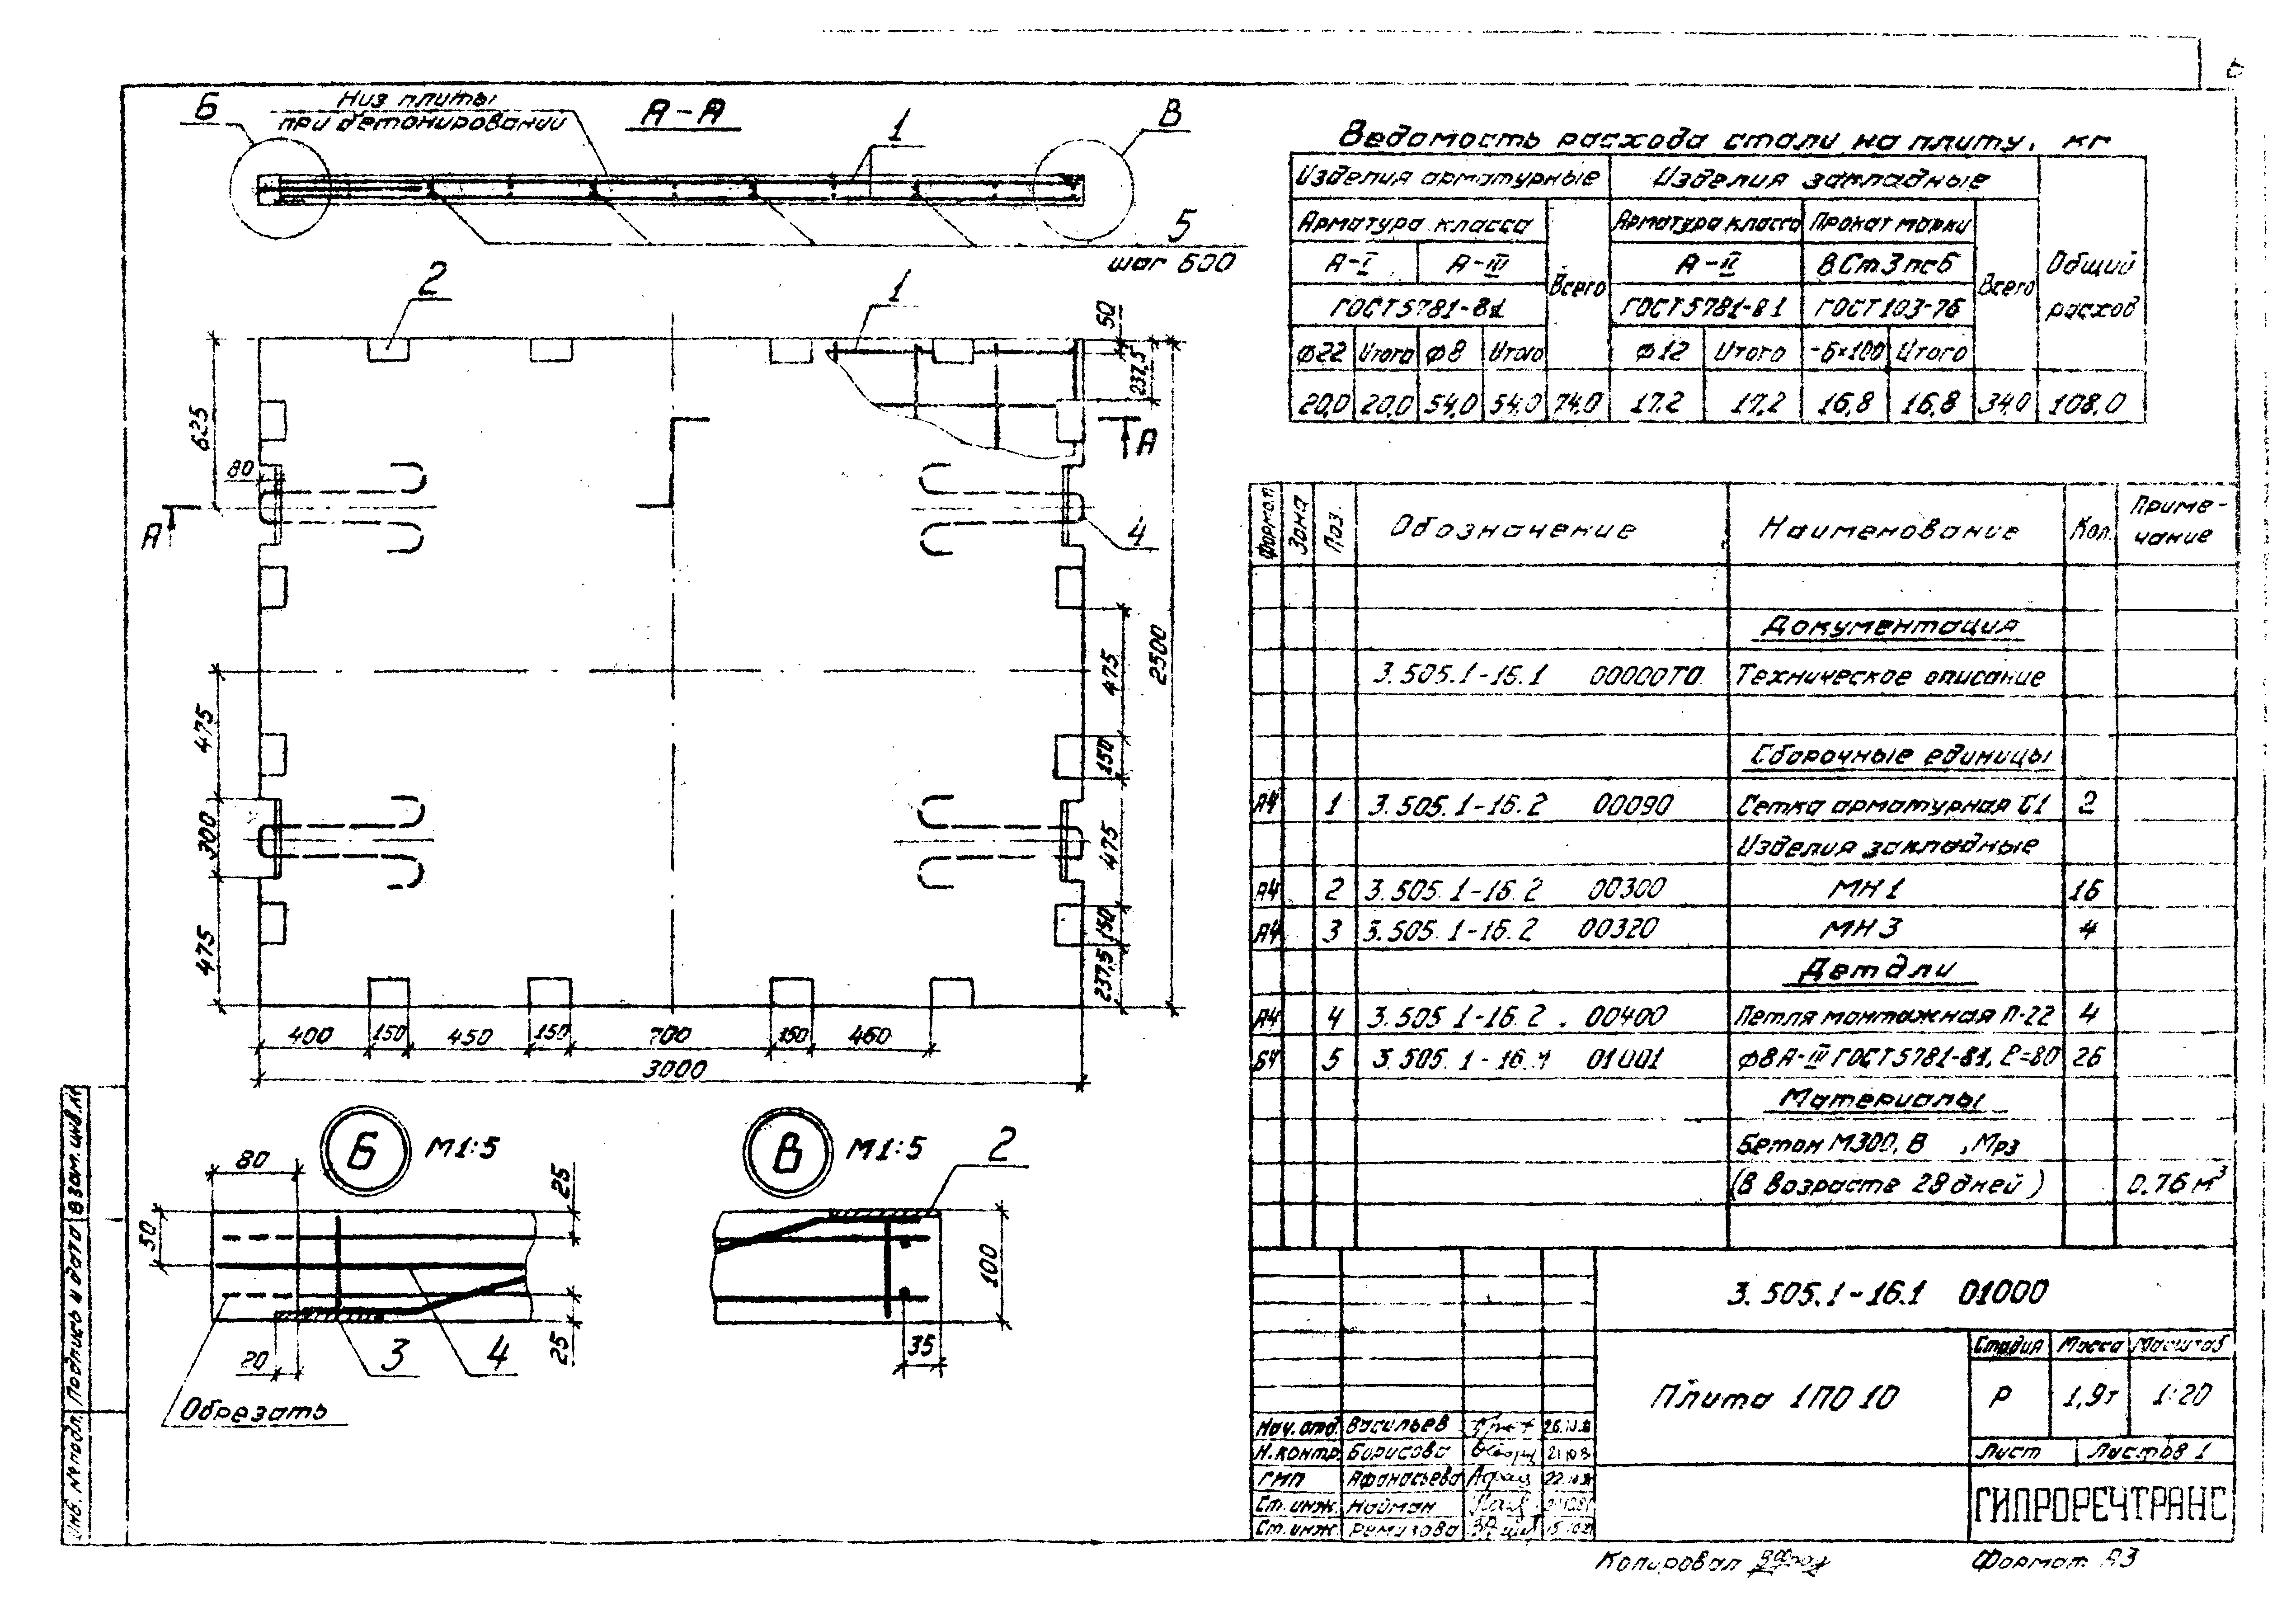 6
Б
Низ плиты
при бетонировании
А-А
1
В
5
шаг 600
2
1
50
237,5
625
80
А
А
4
475
2500
150
475
300
475
475
150
237,5
400
150
450
150
700
150
450
3000
Б
М1:5
80
50
25
25
20
3
4
Обрезать
В
М1:5
2
100
35
Ведомость расхода стали на плиту, кг
Изделия арматурные
Изделия закладные
Общий расход
Арматура класса
Всего
Арматура класса
Прокат марки
Всего
А-I
А-III
А-II
ВСт3пс6
ГОСТ 5781-81
ГОСТ 5781-81
ГОСТ 103-76
φ22
Итого
φ8
Итого
φ12
Итого
-6×100
Итого
20,0
20,0
54,0
54,0
74,0
17.2
17,2
16,8
16.8
34.0
108,0
Формат
Зона
Поз.
Обозначение
Наименование
Кол.
Приме-
чание
Документация
3.505.1-16.1 00000ТО Техническое описание
Сборочные единицы
А4 1 3.505.1-16.2 00090 Сетка арматурная С1 2
Изделия закладные
А4 2 3.505.1-16.2 00300 МН1 16
А4 3 3.505.1-16.2 00320 МН3 4
Детали
А4 4 3.505.1-16.2 . 00400 Петля монтажная П-22 4
БЧ 5 3.505.1-16.1 01001 φ8А-III ГОСТ 5781-81, ℓ=80 26
Материалы
Бетон М300, В , Мрз
(В возрасте 28 дней) 0.76 м³
3.505.1-16.1 01000
Плита 1ПО 10
Стадия
Масса
Масштаб
Р
1,9т
1:20
Лист
Листов 1
ГИПРОРЕЧТРАНС
Нач. отд. Васильев
Н. контр. Борисова
ГИП Афанасьева
Ст. инж. Найман
Ст. инж. Ремизова
Взам. инв. №
Подпись и дата
Инв. № подл.
Копировал
Формат А3